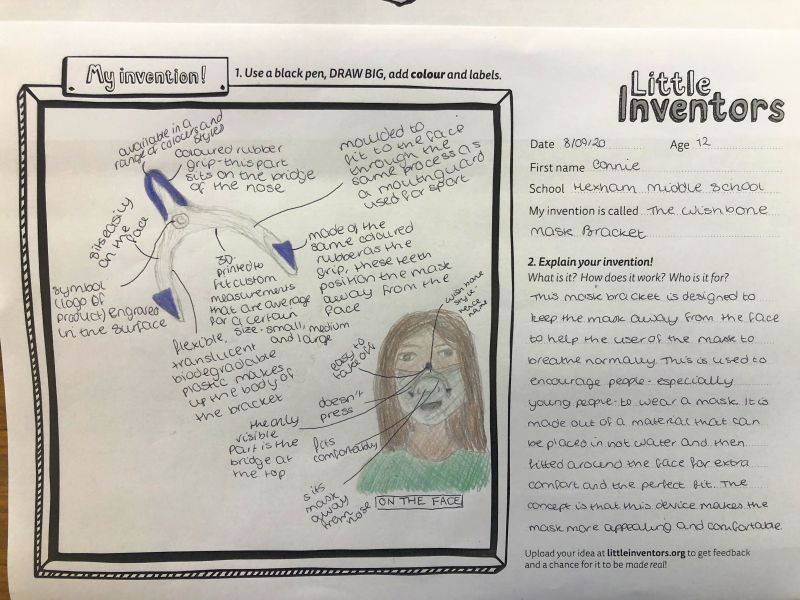 My invention!
1. Use a black pen, DRAW BIG, add colour and labels.
available in a
range of colours and
styles
coloured rubber
grip - this part
sits on the bridge
of the nose
moulded to
fit to the face
through the
same process as
a mouthguard
used for sport
sits easily
on the
face
symbol
(logo of
product) engraved
in the surface
3D-
printed to
fit custom
measurements
that are average
for a certain
size - small, medium
and large
made of the
same coloured
rubber as the
grip, these teeth
position the mask
away from the
face
flexible,
translucent
biodegradable
plastic makes
up the body of
the bracket
wishbone
style -
hence
name
easy to
take off
doesn't
press
the only
visible
part is the
bridge at
the top
fits
comfortably
sits
mask
away
from
nose
ON THE FACE
Little
Inventors
Date 8/09/20 Age 12
First name Connie
School Hexham Middle School
My invention is called The wishbone
Mask Bracket
2. Explain your invention!
What is it? How does it work? Who is it for?
This mask bracket is designed to
keep the mask away from the face
to help the user of the mask to
breathe normally. This is used to
encourage people - especially
young people - to wear a mask. It is
made out of a material that can
be placed in hot water and then
fitted around the face for extra
comfort and the perfect fit. The
concept is that this device makes the
mask more appealing and comfortable.
Upload your idea at littleinventors.org to get feedback
and a chance for it to be made real!